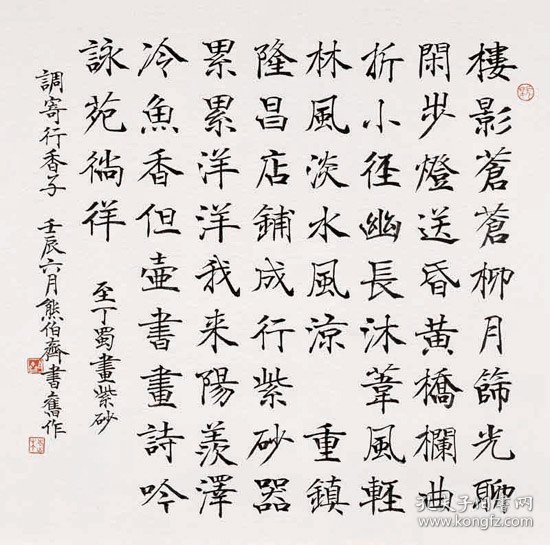 樓影蒼蒼柳月篩光聊
閑步燈送昏黃橋欄曲
折小徑幽長沐葦風輕
林風淡水風涼 重鎮
隆昌店鋪成行紫砂器
累累洋洋我来陽羨澤
冷魚香但壺書畫詩吟
詠苑徜徉
至丁蜀畫紫砂
調寄行香子 壬辰六月熊伯齊書舊作
孔夫子旧书网
www.kongfz.com